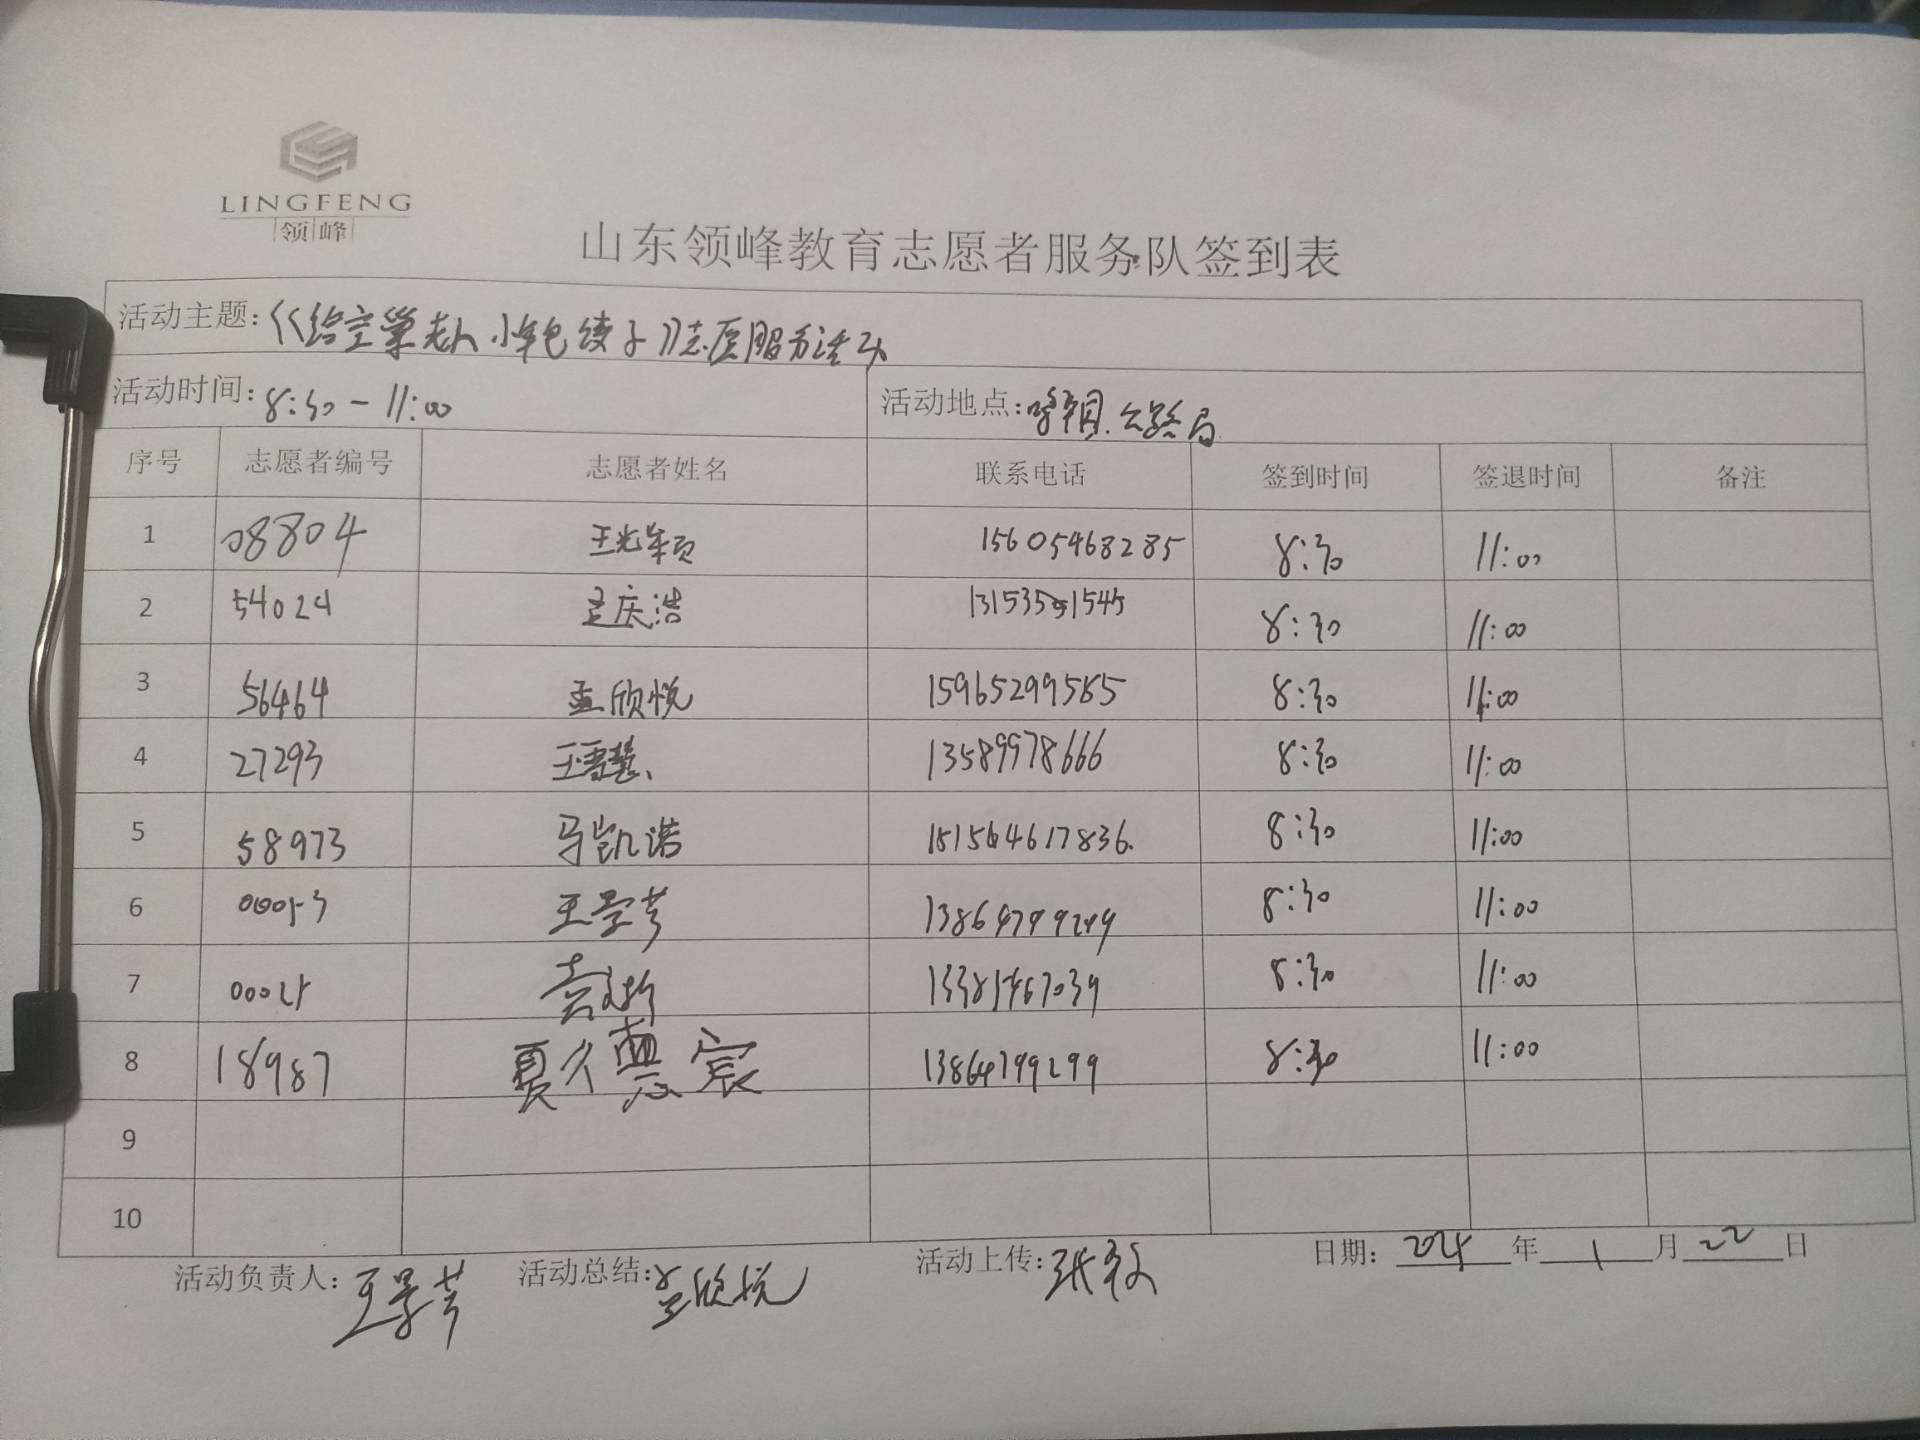 LINGFENG
领峰
山东领峰教育志愿者服务队签到表
活动主题:《给空巢老人小年包饺子》志愿服务活动
活动时间:8:30-11:00 活动地点: 公路局
序号 志愿者编号 志愿者姓名 联系电话 签到时间 签退时间 备注
1 08804 王光颖 15605468285 8:30 11:00
2 54024 孟庆浩 8:30 11:00
3 56464 孟欣悦 15965299585 8:30 11:00
4 27293 王雪慧 13589978666 8:30 11:00
5 58973 马凯诺 8:30 11:00
6 00053 王景芳 13864799299 8:30 11:00
7 8:30 11:00
8 18987 夏 宸 13864799299 8:30 11:00
9
10
活动负责人:王景芳 活动总结:孟欣悦 活动上传:张 日期: 年1月22日